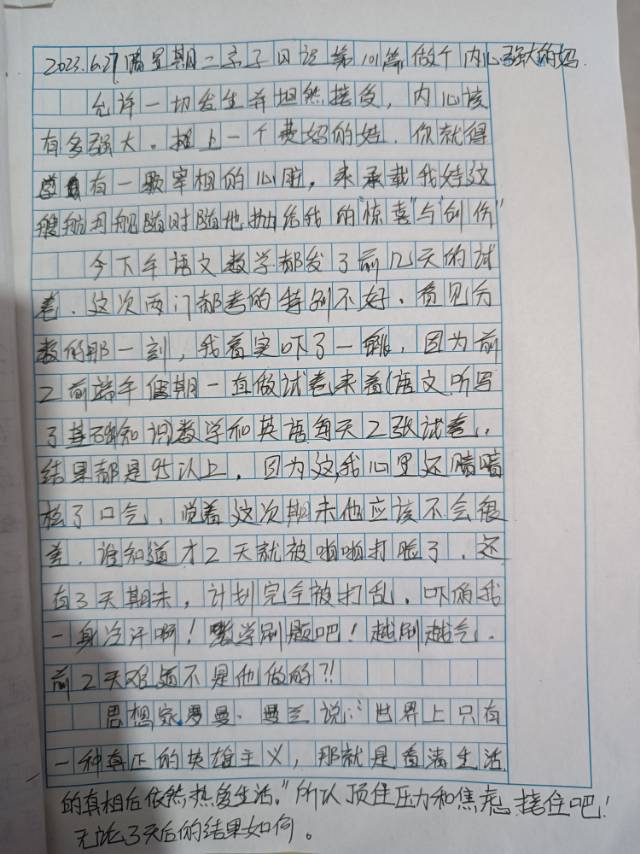 2023.6.27 晴 星期二 亲子日记 第101篇 做个内心强大的妈.
允许一切发生并坦然接受，内心该
有多强大。摊上一个费妈的娃，你就得
有一颗宰相的心脏，来承载我娃这
艘航母舰随时随地抛给我的"惊喜"与"创伤"
今下午语文数学都发了前几天的试
卷．这次两门都考的特别不好．看见分
数的那一刻，我着实吓了一跳，因为前
2前端午假期一直做试卷来着（语文听写
了基础知识数学和英语每天2张试卷．
结果都是95以上．因为这，我心里还暗暗
松了口气．觉着这次期末他应该不会很
差．谁知道才2天就被啪啪打脸了．还
有3天期末，计划完全被打乱．吓俺我
一身冷汗啊！数学刷题吧！越刷越气．
前2天难道不是他做的?!
思想家罗曼·罗兰说："世界上只有
一种真正的英雄主义，那就是看清生活
的真相后依然热爱生活."所以顶住压力和焦虑 接住吧！
无论3天后的结果如何。